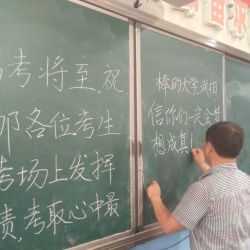 考将至，祝
各位考生
考场上发挥
绩，考取心中最
棒的大学，我相
信你们一定会梦
想成真！